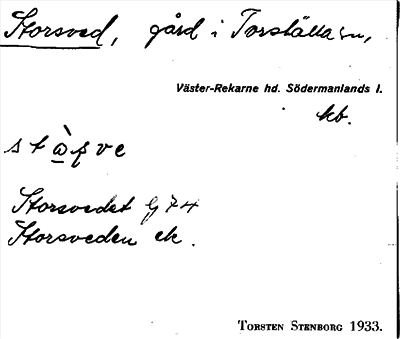 Storsved, gård i Torshälla sn,
Väster-Rekarne hd. Södermanlands l.
kb.
Storsvedet Gj 74
Storsveden ek.
TORSTEN STENBORG 1933.